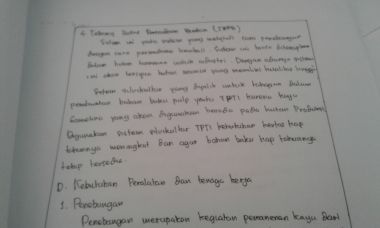 4. Tebang Habis Permudaan Buatan (THPB)
Sistem ini yaitu sistem yang meliputi cara penebangan
dengan cara permudaan buatan. Sistem ini harus diterapkan
dalam hutan tanaman untuk industri. Dengan adanya sistem
ini akan tercipta hutan tanaman yang memiliki kualitas tinggi.
Sistem silvikultur yang dipilih untuk tahapan dalam
pembuatan bahan baku pulp yaitu TPTI karena kayu
yang akan digunakan berada pada hutan Produksi
Digunakan sistem silvikultur TPTI kebutuhan kertas tiap
tahunnya meningkat dan agar bahan baku tiap tahunnya
tetap tersedia.
D. Kebutuhan Peralatan dan tenaga kerja
1. Penebangan
Penebangan merupakan kegiatan pemanenan kayu dari